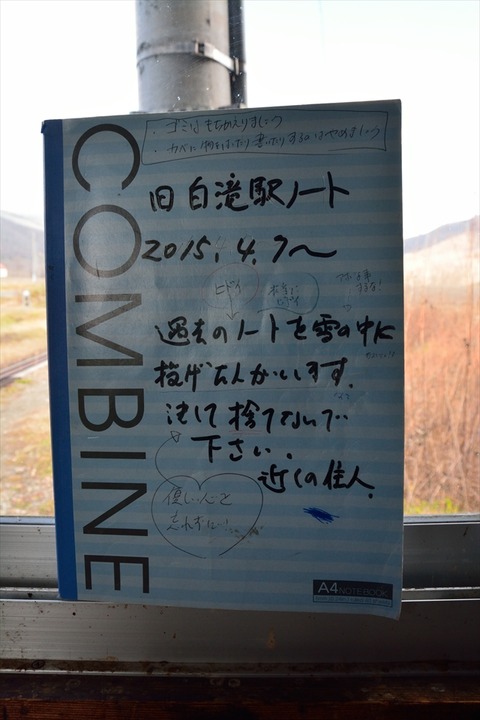 ・ゴミはもちかえりましょう
・カベに物をはったり書いたりするのはやめましょう
旧白滝駅ノート
2015.4.7〜
ヒドイ
本当に
過去のノートを雪の中に
投げた人がいます。
決して捨てないで
下さい。
近くの住人。
優しい心を
忘れずに!
COMBINE
A4 NOTEBOOK